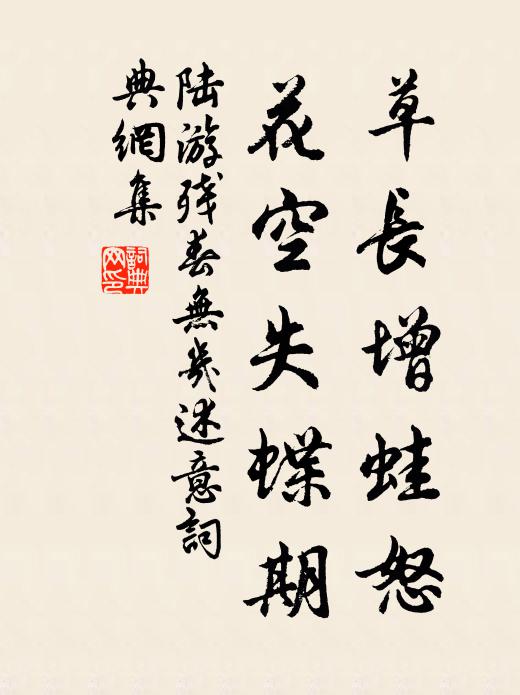 草長增蛙怒
花空失蝶期
陆游殘春無幾述意詞
典網集
詞典
网印